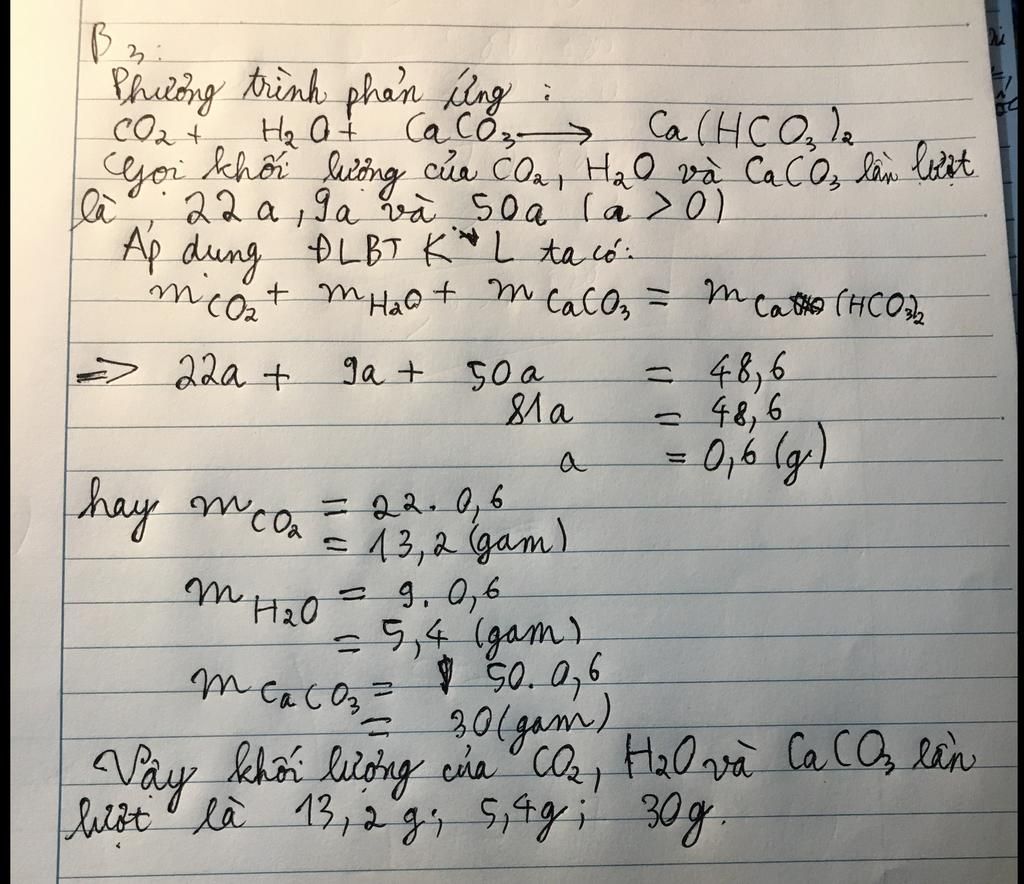 B3:
Phương trình phản ứng :
CO2 + H2O + CaCO3 → Ca(HCO3)2
Gọi khối lượng của CO2, H2O và CaCO3 lần lượt
là, 22a, 9a và 50a (a > 0)
Áp dụng ĐLBT K L ta có:
mCO2 + mH2O + mCaCO3 = mCa(HCO3)2
=> 22a + 9a + 50a = 48,6
81a = 48,6
a = 0,6 (g)
hay mCO2 = 22. 0,6
= 13,2 (gam)
mH2O = 9. 0,6
= 5,4 (gam)
mCaCO3 = 50. 0,6
= 30 (gam)
Vậy khối lượng của CO2, H2O và CaCO3 lần
lượt là 13,2 g; 5,4g; 30g.